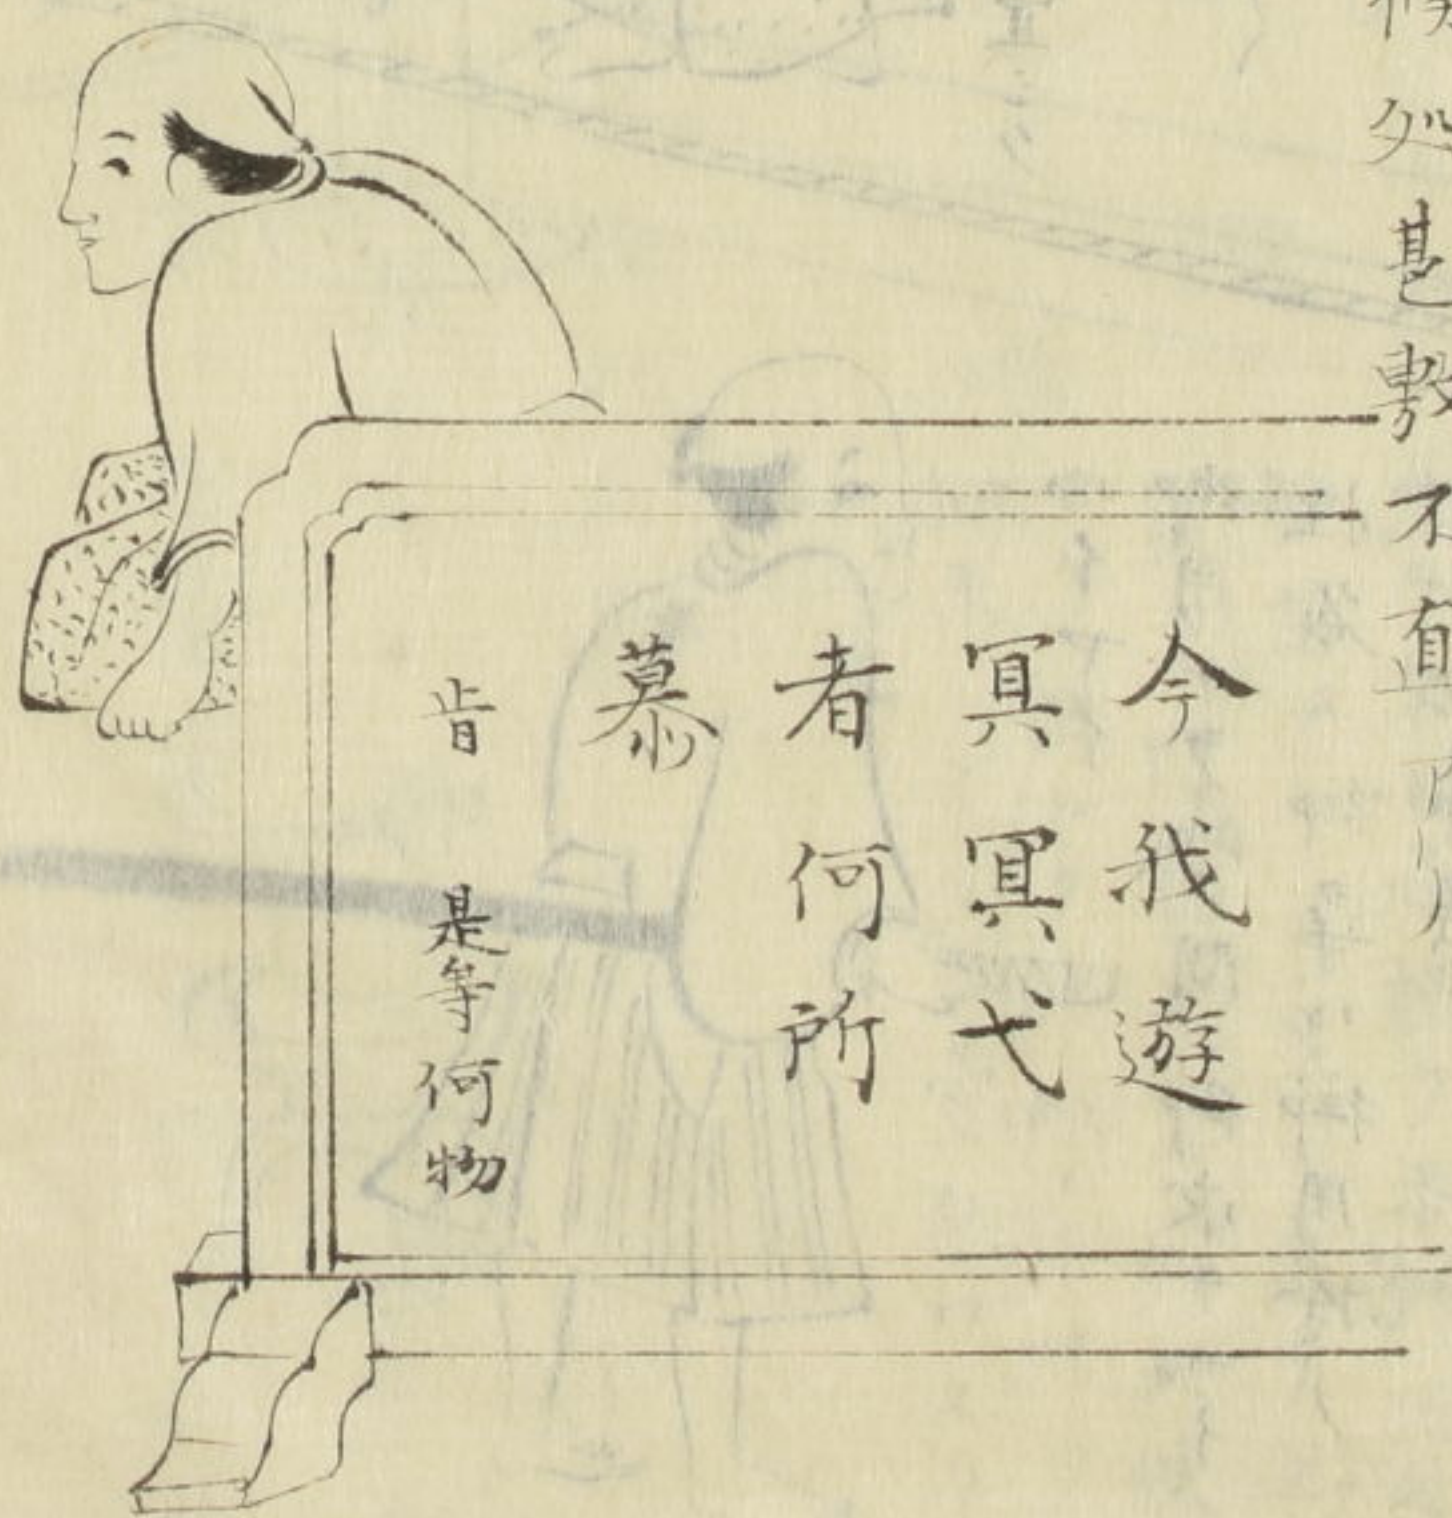 処甚敷不直
今我遊
冥冥弋
者何所
慕
旹 是等何物